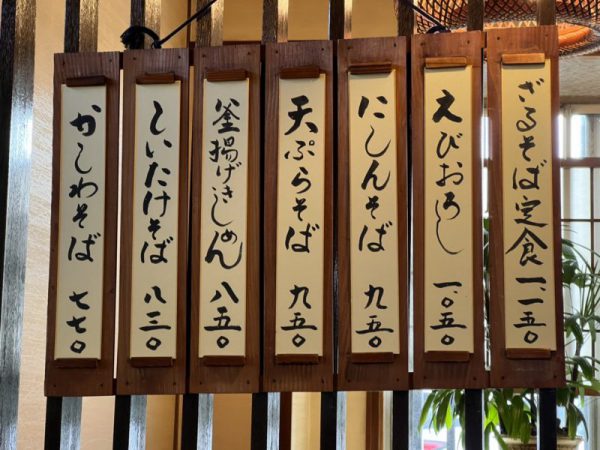 ざるそば定食 一、一五〇
えびおろし 一、〇五〇
にしんそば 九五〇
天ぷらそば 九五〇
釜揚げきしめん 八五〇
しいたけそば 八三〇
かしわそば 七七〇